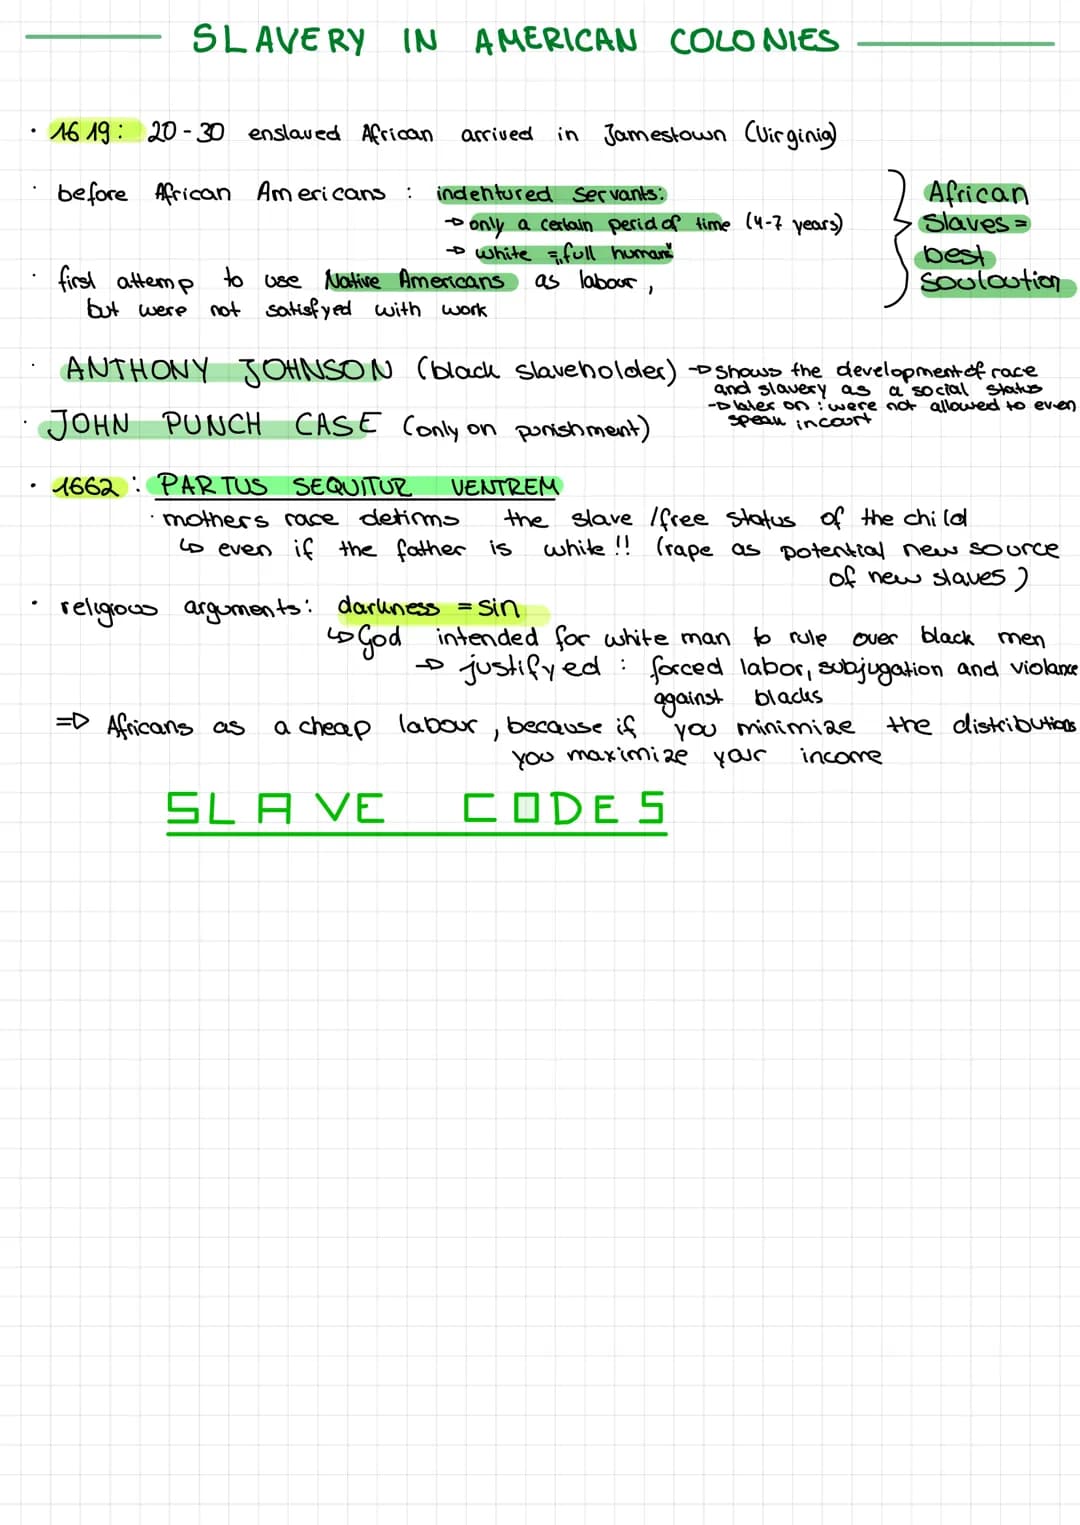 SLAVERY IN AMERICAN COLONIES
· 1619: 20-30 enslaved African arrived in Jamestown (Virginia)
· before African Americans : indentured Servants:
→ only a certain perid of time (4-7 years)
→ white = „full human"
African
Slaves =
best
Souloution
· first attemp to use Native Americans as labour,
but were not satisfyed with work
· ANTHONY JOHNSON (black slaveholder) → shows the development of race
and slavery as a social status
→ later on : were not allowed to even
speak in court
· JOHN PUNCH CASE (only on punishment)
· 1662 : PARTUS SEQUITUR VENTREM
· mothers race detirms the slave / free status of the child
↳ even if the father is white !! (rape as potential new source
of new slaves)
· religious arguments: darkness = sin
↳ God intended for white man to rule over black men
→ justifyed : forced labor, subjugation and violance
against blacks
⇒ Africans as a cheap labour, because if you minimize the distributions
you maximize your income
SLAVE CODES